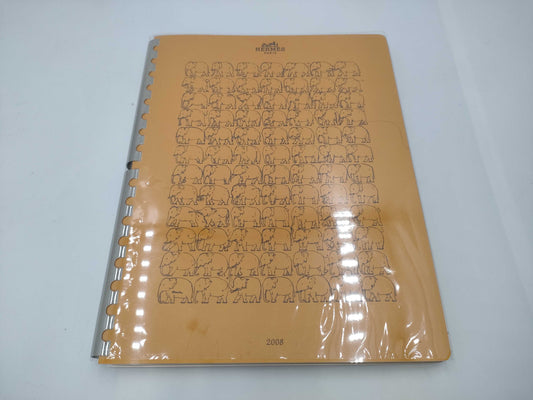 HERMÈS
PARIS
2008